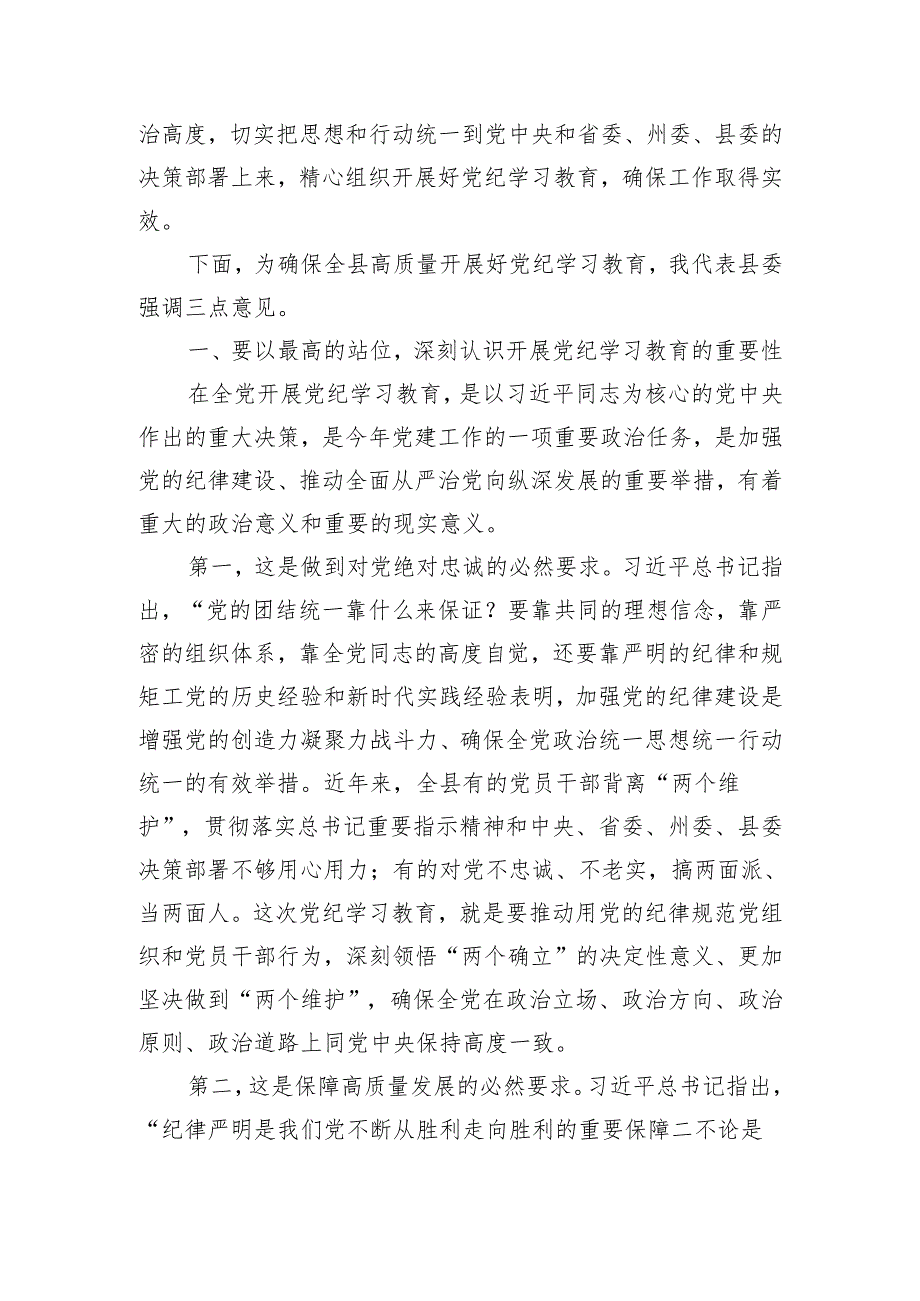 治高度，切实把思想和行动统一到党中央和省委、州委、县委的
决策部署上来，精心组织开展好党纪学习教育，确保工作取得实
效。
下面，为确保全县高质量开展好党纪学习教育，我代表县委
强调三点意见。
一、要以最高的站位，深刻认识开展党纪学习教育的重要性
在全党开展党纪学习教育，是以习近平同志为核心的党中央
作出的重大决策，是今年党建工作的一项重要政治任务，是加强
党的纪律建设、推动全面从严治党向纵深发展的重要举措，有着
重大的政治意义和重要的现实意义。
第一，这是做到对党绝对忠诚的必然要求。习近平总书记指
出，“党的团结统一靠什么来保证？要靠共同的理想信念，靠严
密的组织体系，靠全党同志的高度自觉，还要靠严明的纪律和规
矩工党的历史经验和新时代实践经验表明，加强党的纪律建设是
增强党的创造力凝聚力战斗力、确保全党政治统一思想统一行动
统一的有效举措。近年来，全县有的党员干部背离“两个维
护”，贯彻落实总书记重要指示精神和中央、省委、州委、县委
决策部署不够用心用力；有的对党不忠诚、不老实，搞两面派、
当两面人。这次党纪学习教育，就是要推动用党的纪律规范党组
织和党员干部行为，深刻领悟“两个确立”的决定性意义、更加
坚决做到“两个维护”，确保全党在政治立场、政治方向、政治
原则、政治道路上同党中央保持高度一致。
第二，这是保障高质量发展的必然要求。习近平总书记指出，
“纪律严明是我们党不断从胜利走向胜利的重要保障二不论是